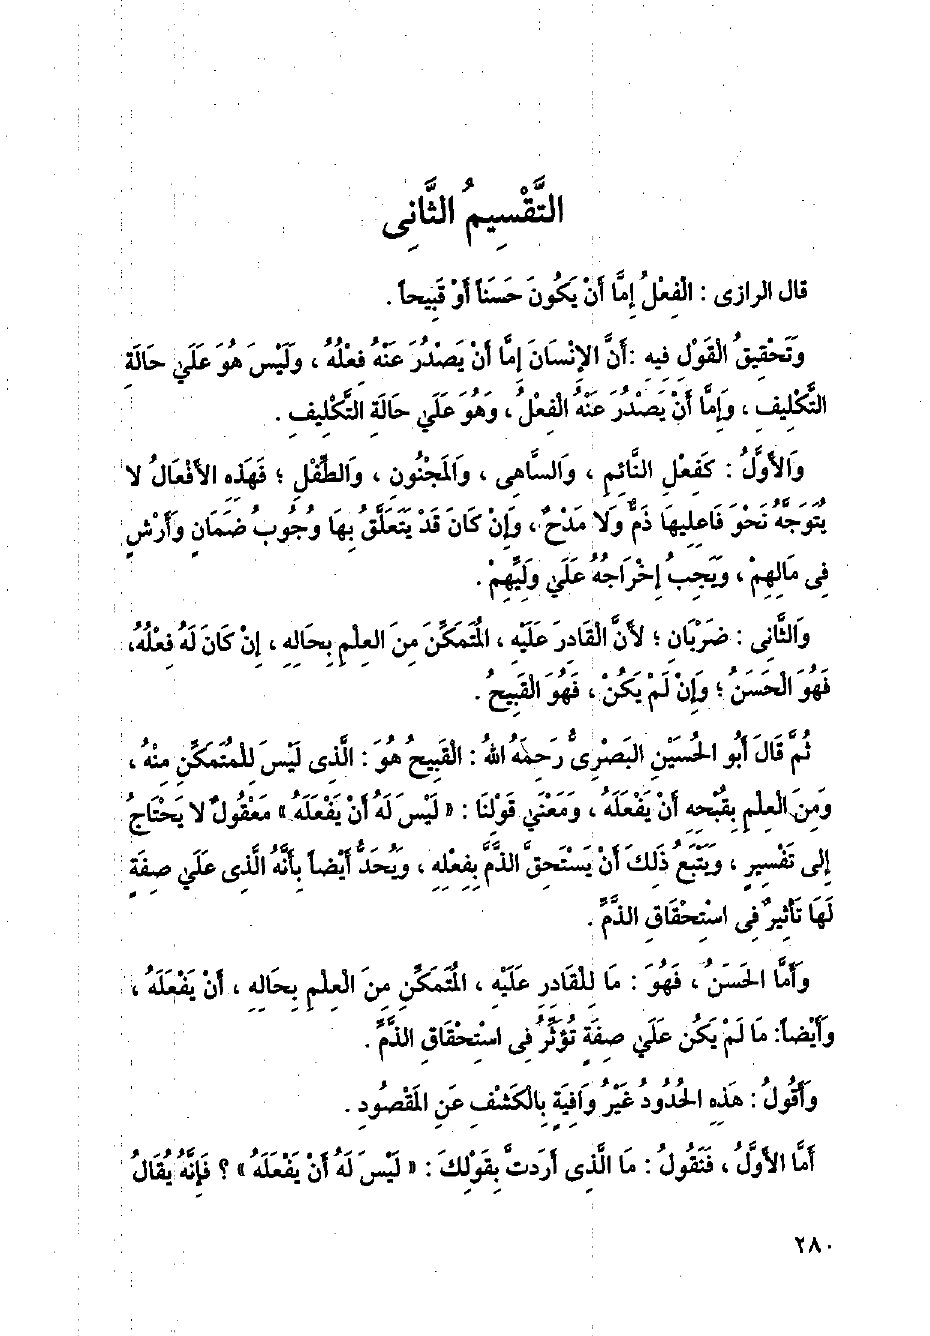 التَّقْسِيمُ الثَّانِى
قال الرازى : الْفِعْلُ إِمَّا أَنْ يَكُونَ حَسَناً أَوْ قَبِيحاً .
وَتَحْقِيقُ الْقَوْلِ فِيهِ :أَنَّ الإِنْسَانَ إِمَّا أَنْ يَصْدُرَ عَنْهُ فِعْلُهُ ، وَلَيْسَ هُوَ عَلَىٰ حَالَةِ
التَّكْلِيفِ ، وَإِمَّا أَنْ يَصْدُرَ عَنْهُ الْفِعْلُ ، وَهُوَ عَلَىٰ حَالَةِ التَّكْلِيفِ .
وَالأَوَّلُ : كَفِعْلِ النَّائِمِ ، وَالسَّاهِى ، وَالمَجْنُونِ ، وَالطِّفْلِ ؛ فَهَذِهِ الأَفْعَالُ لا
يُتَوَجَّهُ نَحْوَ فَاعِلِيهَا ذَمٌّ وَلا مَدْحٌ ، وَإِنْ كَانَ قَدْ يَتَعَلَّقُ بِهَا وُجُوبُ ضَمَانٍ وَأَرْشٍ
فِى مَالِهِمْ ، وَيَجِبُ إِخْرَاجُهُ عَلَىٰ وَلِيِّهِمْ .
وَالثَّانِى : ضَرْبَانِ ؛ لأَنَّ الْقَادِرَ عَلَيْهِ ، المُتَمَكِّنَ مِنَ العِلْمِ بِحَالِهِ ، إِنْ كَانَ لَهُ فِعْلُهُ،
فَهُوَ الْحَسَنُ ؛ وَإِنْ لَمْ يَكُنْ ، فَهُوَ الْقَبِيحُ .
ثُمَّ قَالَ أَبُو الحُسَيْنِ البَصْرِىُّ رَحِمَهُ اللهُ : الْقَبِيحُ هُوَ : الَّذِى لَيْسَ لِلْمُتَمَكِّنِ مِنْهُ ،
وَمِنَ الْعِلْمِ بِقُبْحِهِ أَنْ يَفْعَلَهُ ، وَمَعْنَىٰ قَوْلِنَا : « لَيْسَ لَهُ أَنْ يَفْعَلَهُ » مَعْقُولٌ لا يَحْتَاجُ
إِلى تَفْسِيرٍ ، وَيَتْبَعُ ذَلِكَ أَنْ يَسْتَحِقَّ الذَّمَّ بِفِعْلِهِ ، وَيُحَدُّ أَيْضاً بِأَنَّهُ الَّذِى عَلَىٰ صِفَةٍ
لَهَا تَأْثِيرٌ فِى اسْتِحْقَاقِ الذَّمِّ .
وَأَمَّا الحَسَنُ ، فَهُوَ : مَا لِلْقَادِرِ عَلَيْهِ ، المُتَمَكِّنِ مِنَ الْعِلْمِ بِحَالِهِ ، أَنْ يَفْعَلَهُ ،
وَأَيْضاً: مَا لَمْ يَكُن عَلَىٰ صِفَةٍ تُؤَثِّرُ فِى اسْتِحْقَاقِ الذَّمِّ .
وَأَقُولُ : هَذِهِ الحُدُودُ غَيْرُ وَافِيَةٍ بِالْكَشْفِ عَنِ المَقْصُودِ .
أَمَّا الأَوَّلُ ، فَنَقُولُ : مَا الَّذِى أَرَدتَّ بِقَوْلِكَ : « لَيْسَ لَهُ أَنْ يَفْعَلَهُ » ؟ فَإِنَّهُ يُقَالُ
٢٨٠